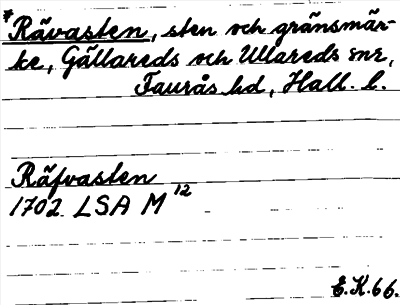 *Rävasten, sten och gränsmär-
ke, Gällareds och Ullareds snr,
Faurås hd, Hall. l.
Räfvasten
1702 LSA M 12
E.K. 66.